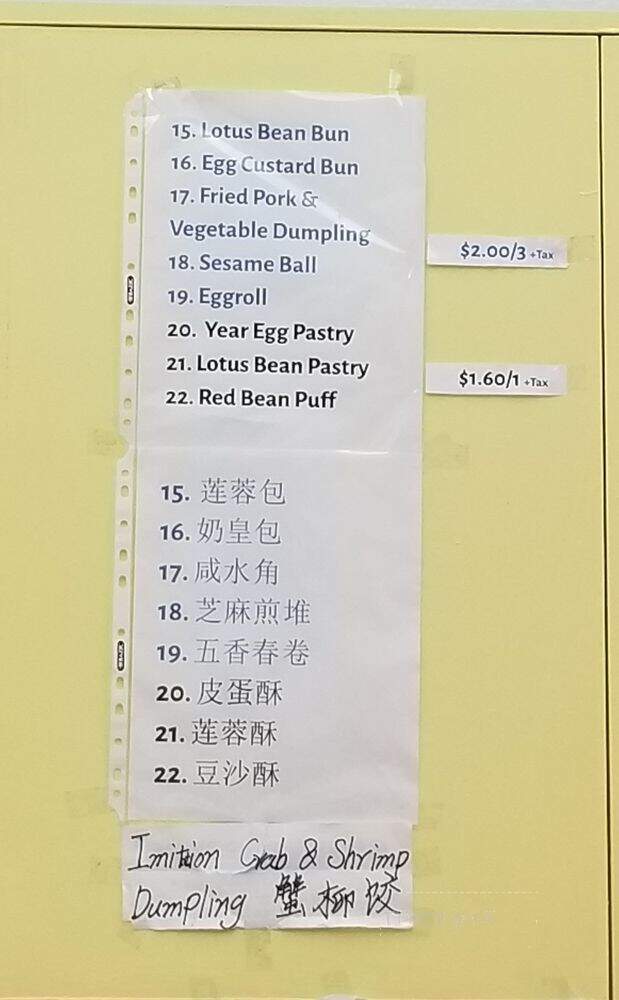 15. Lotus Bean Bun
16. Egg Custard Bun
17. Fried Pork &
Vegetable Dumpling
$2.00/3 +Tax
18. Sesame Ball
19. Eggroll
20. Year Egg Pastry
21. Lotus Bean Pastry
$1.60/1 +Tax
22. Red Bean Puff
15. 莲蓉包
16. 奶皇包
17. 咸水角
18. 芝麻煎堆
19. 五香春卷
20. 皮蛋酥
21. 莲蓉酥
22. 豆沙酥
Imition Crab & Shrimp
Dumpling 蟹柳饺